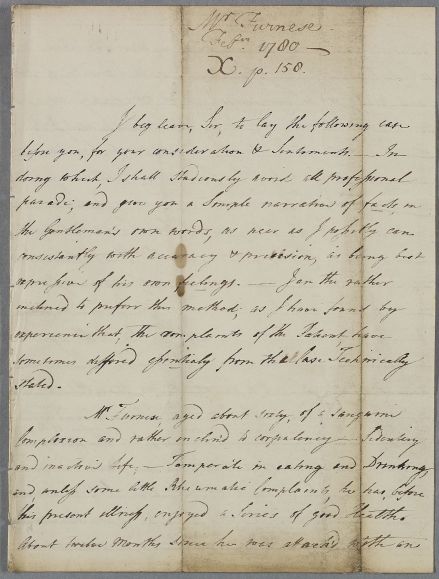 Mr. Furnese.
1780 —
X. p. 158.
I beg leave, Sir, to lay the following case
before you, for your consideration & Sentiments. — In
doing which, I shall studiously avoid all professional
parade; and give you a Simple narration of facts, in
the Gentleman's own words, as near as I possibly can
consistantly with accuracy & precision, as being best
expressive of his own feelings. — I am the rather
inclined to preferr this method, as I have found by
experience that, the complaints of the Patient have
sometimes differed essentialy from the Case Technically
stated.
Mr. Furnese, aged about sixty, of a Sanguine
Complexion and rather inclin'd to corpulency — Sedentary
and inactive life, — Temperate in eating and Drinking
and, unless some little Rheumatic Complaints, he has, before
this present illness, enjoyed a Series of good Health.
About twelve months since he was attack'd with an